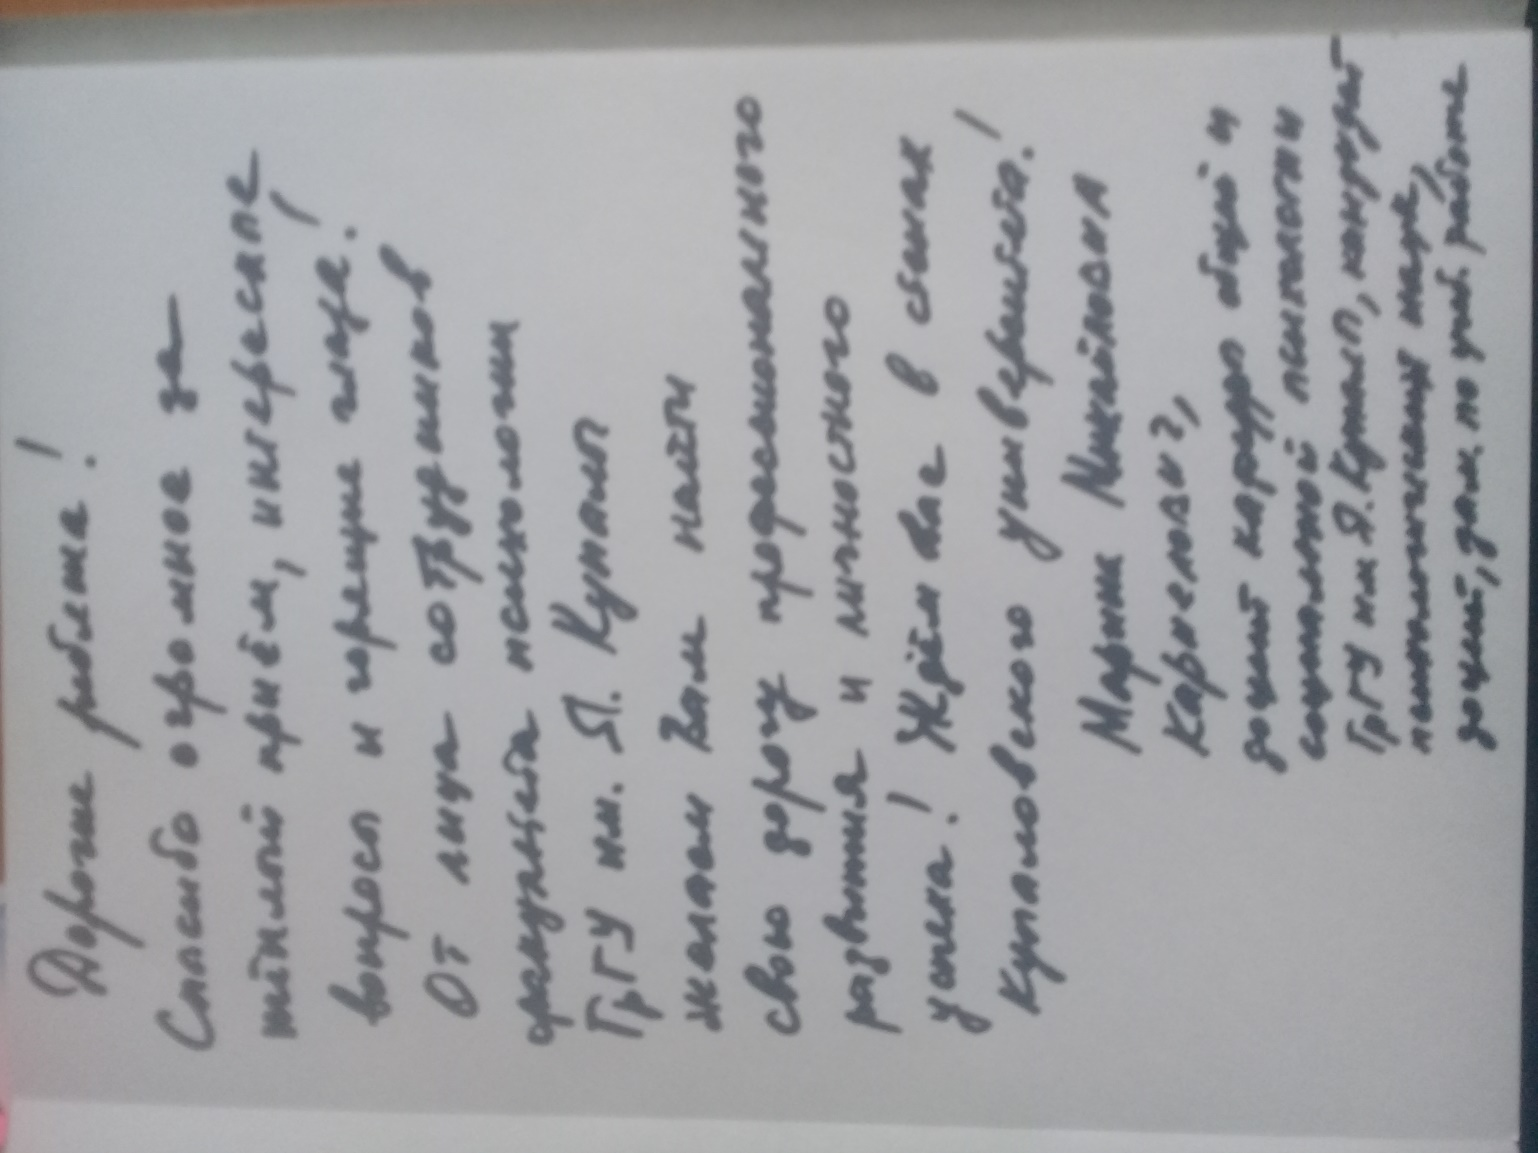 Дорогие ребята!
Спасибо огромное за
тёплый приём, интересные
вопросы и горящие глаза!
От лица сотрудников
факультета психологии
ГрГУ им. Я. Купалы
желаем Вам найти
свою дорогу профессионального
развития и личностного
успеха! Ждём вас в стенах
Купаловского университета!
Марина Михайловна
Карнелович,
доцент кафедры общей и
социальной психологии
ГрГУ им Я. Купалы, кандидат
психологических наук,
доцент, зам. по учеб. работе